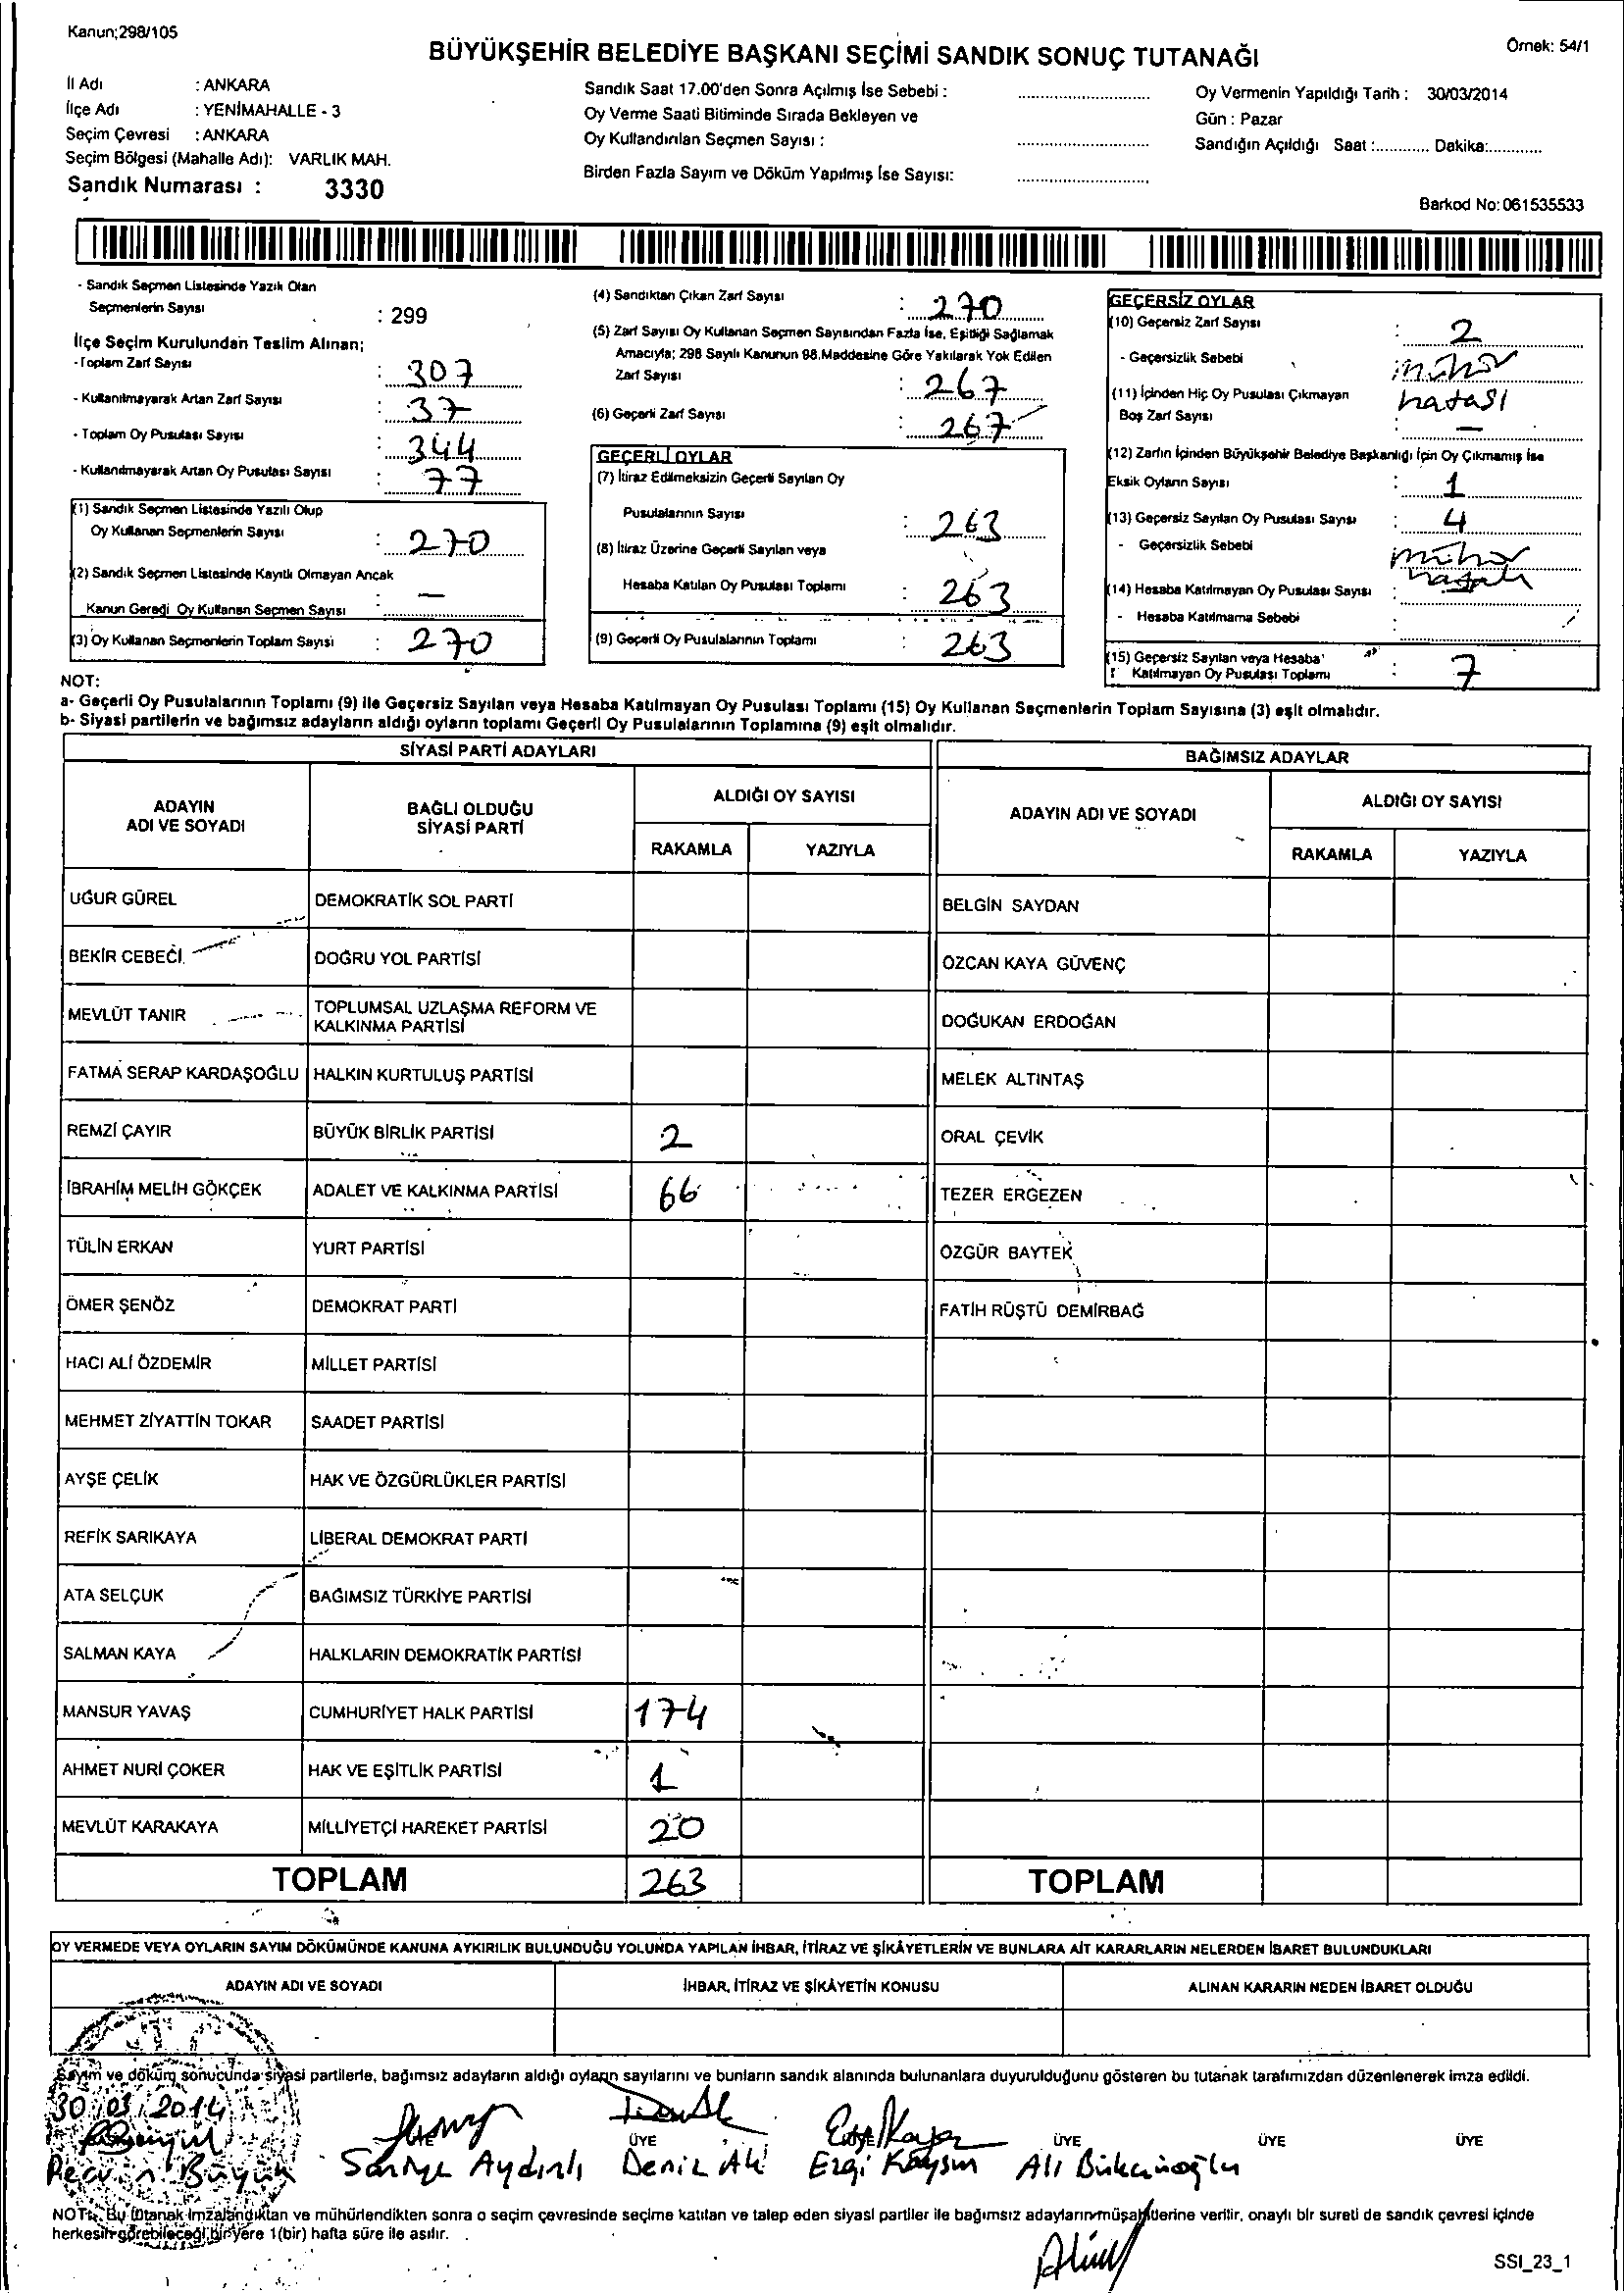 Kanun;298/105
Örnek: 54/1
BÜYÜKŞEHİR BELEDİYE BAŞKANI SEÇİMİ SANDIK SONUÇ TUTANAĞI
İl Adı : ANKARA
İlçe Adı : YENİMAHALLE - 3
Seçim Çevresi : ANKARA
Seçim Bölgesi (Mahalle Adı): VARLIK MAH.
Sandık Numarası : 3330
Sandık Saat 17.00'den Sonra Açılmış İse Sebebi : ..............................
Oy Verme Saati Bitiminde Sırada Bekleyen ve
Oy Kullandırılan Seçmen Sayısı : ..............................
Birden Fazla Sayım ve Döküm Yapılmış İse Sayısı: ..............................
Oy Vermenin Yapıldığı Tarih : 30/03/2014
Gün : Pazar
Sandığın Açıldığı Saat :............ Dakika:............
Barkod No: 061535533
- Sandık Seçmen Listesinde Yazılı Olan
Seçmenlerin Sayısı : 299
İlçe Seçim Kurulundan Teslim Alınan;
- Toplam Zarf Sayısı : 307
- Kullanılmayarak Artan Zarf Sayısı : 37
- Toplam Oy Pusulası Sayısı : 344
- Kullanılmayarak Artan Oy Pusulası Sayısı : 77
(1) Sandık Seçmen Listesinde Yazılı Olup
Oy Kullanan Seçmenlerin Sayısı : 270
(2) Sandık Seçmen Listesinde Kayıtlı Olmayan Ancak
Kanun Gereği Oy Kullanan Seçmen Sayısı : -
(3) Oy Kullanan Seçmenlerin Toplam Sayısı : 270
(4) Sandıktan Çıkan Zarf Sayısı : 270
(5) Zarf Sayısı Oy Kullanan Seçmen Sayısından Fazla İse, Eşitliği Sağlamak
Amacıyla; 298 Sayılı Kanunun 98.Maddesine Göre Yakılarak Yok Edilen
Zarf Sayısı : 267
(6) Geçerli Zarf Sayısı : 267
GEÇERLİ OYLAR
(7) İtiraz Edilmeksizin Geçerli Sayılan Oy
Pusulalarının Sayısı : 263
(8) İtiraz Üzerine Geçerli Sayılan veya
Hesaba Katılan Oy Pusulası Toplamı : 263
(9) Geçerli Oy Pusulalarının Toplamı : 263
GEÇERSİZ OYLAR
(10) Geçersiz Zarf Sayısı : 2
- Geçersizlik Sebebi : mühür
hatası
(11) İçinden Hiç Oy Pusulası Çıkmayan
Boş Zarf Sayısı : -
(12) Zarfın İçinden Büyükşehir Belediye Başkanlığı İçin Oy Çıkmamış İse
Eksik Oyların Sayısı : 1
(13) Geçersiz Sayılan Oy Pusulası Sayısı : 4
- Geçersizlik Sebebi mühür
hatalı
(14) Hesaba Katılmayan Oy Pusulası Sayısı :
- Hesaba Katılmama Sebebi :
(15) Geçersiz Sayılan veya Hesaba
Katılmayan Oy Pusulası Toplamı : 7
NOT:
a- Geçerli Oy Pusulalarının Toplamı (9) ile Geçersiz Sayılan veya Hesaba Katılmayan Oy Pusulası Toplamı (15) Oy Kullanan Seçmenlerin Toplam Sayısına (3) eşit olmalıdır.
b- Siyasi partilerin ve bağımsız adayların aldığı oyların toplamı Geçerli Oy Pusulalarının Toplamına (9) eşit olmalıdır.
SİYASİ PARTİ ADAYLARI BAĞIMSIZ ADAYLAR
ADAYIN ADI VE SOYADI BAĞLI OLDUĞU SİYASİ PARTİ ALDIĞI OY SAYISI ADAYIN ADI VE SOYADI ALDIĞI OY SAYISI
RAKAMLA YAZIYLA RAKAMLA YAZIYLA
UĞUR GÜREL DEMOKRATİK SOL PARTİ BELGİN SAYDAN
BEKİR CEBECİ DOĞRU YOL PARTİSİ ÖZCAN KAYA GÜVENÇ
MEVLÜT TANIR TOPLUMSAL UZLAŞMA REFORM VE KALKINMA PARTİSİ DOĞUKAN ERDOĞAN
FATMA SERAP KARDAŞOĞLU HALKIN KURTULUŞ PARTİSİ MELEK ALTINTAŞ
REMZİ ÇAYIR BÜYÜK BİRLİK PARTİSİ 2 ORAL ÇEVİK
İBRAHİM MELİH GÖKÇEK ADALET VE KALKINMA PARTİSİ 66 TEZER ERGEZEN
TÜLİN ERKAN YURT PARTİSİ ÖZGÜR BAYTEK
ÖMER ŞENÖZ DEMOKRAT PARTİ FATİH RÜŞTÜ DEMİRBAĞ
HACI ALİ ÖZDEMİR MİLLET PARTİSİ
MEHMET ZİYATTİN TOKAR SAADET PARTİSİ
AYŞE ÇELİK HAK VE ÖZGÜRLÜKLER PARTİSİ
REFİK SARIKAYA LİBERAL DEMOKRAT PARTİ
ATA SELÇUK BAĞIMSIZ TÜRKİYE PARTİSİ
SALMAN KAYA HALKLARIN DEMOKRATİK PARTİSİ
MANSUR YAVAŞ CUMHURİYET HALK PARTİSİ 174
AHMET NURİ ÇOKER HAK VE EŞİTLİK PARTİSİ 1
MEVLÜT KARAKAYA MİLLİYETÇİ HAREKET PARTİSİ 20
TOPLAM 263 TOPLAM
OY VERMEDE VEYA OYLARIN SAYIM DÖKÜMÜNDE KANUNA AYKIRILIK BULUNDUĞU YOLUNDA YAPILAN İHBAR, İTİRAZ VE ŞİKÂYETLERİN VE BUNLARA AİT KARARLARIN NELERDEN İBARET BULUNDUKLARI
ADAYIN ADI VE SOYADI İHBAR, İTİRAZ VE ŞİKÂYETİN KONUSU ALINAN KARARIN NEDEN İBARET OLDUĞU
Sayım ve döküm sonucunda siyasi partilerle, bağımsız adayların aldığı oyların sayılarını ve bunların sandık alanında bulunanlara duyurulduğunu gösteren bu tutanak tarafımızdan düzenlenerek imza edildi.
30/03/2014
ÜYE ÜYE ÜYE ÜYE
Büyük Aydınlı Deniz Ezgi Ali
NOT: Bu tutanak imzalandıktan ve mühürlendikten sonra o seçim çevresinde seçime katılan ve talep eden siyasi partiler ile bağımsız adayların müşahitlerine verilir, onaylı bir sureti de sandık çevresi içinde
herkesin görebileceği bir yere 1(bir) hafta süre ile asılır.
SSI_23_1